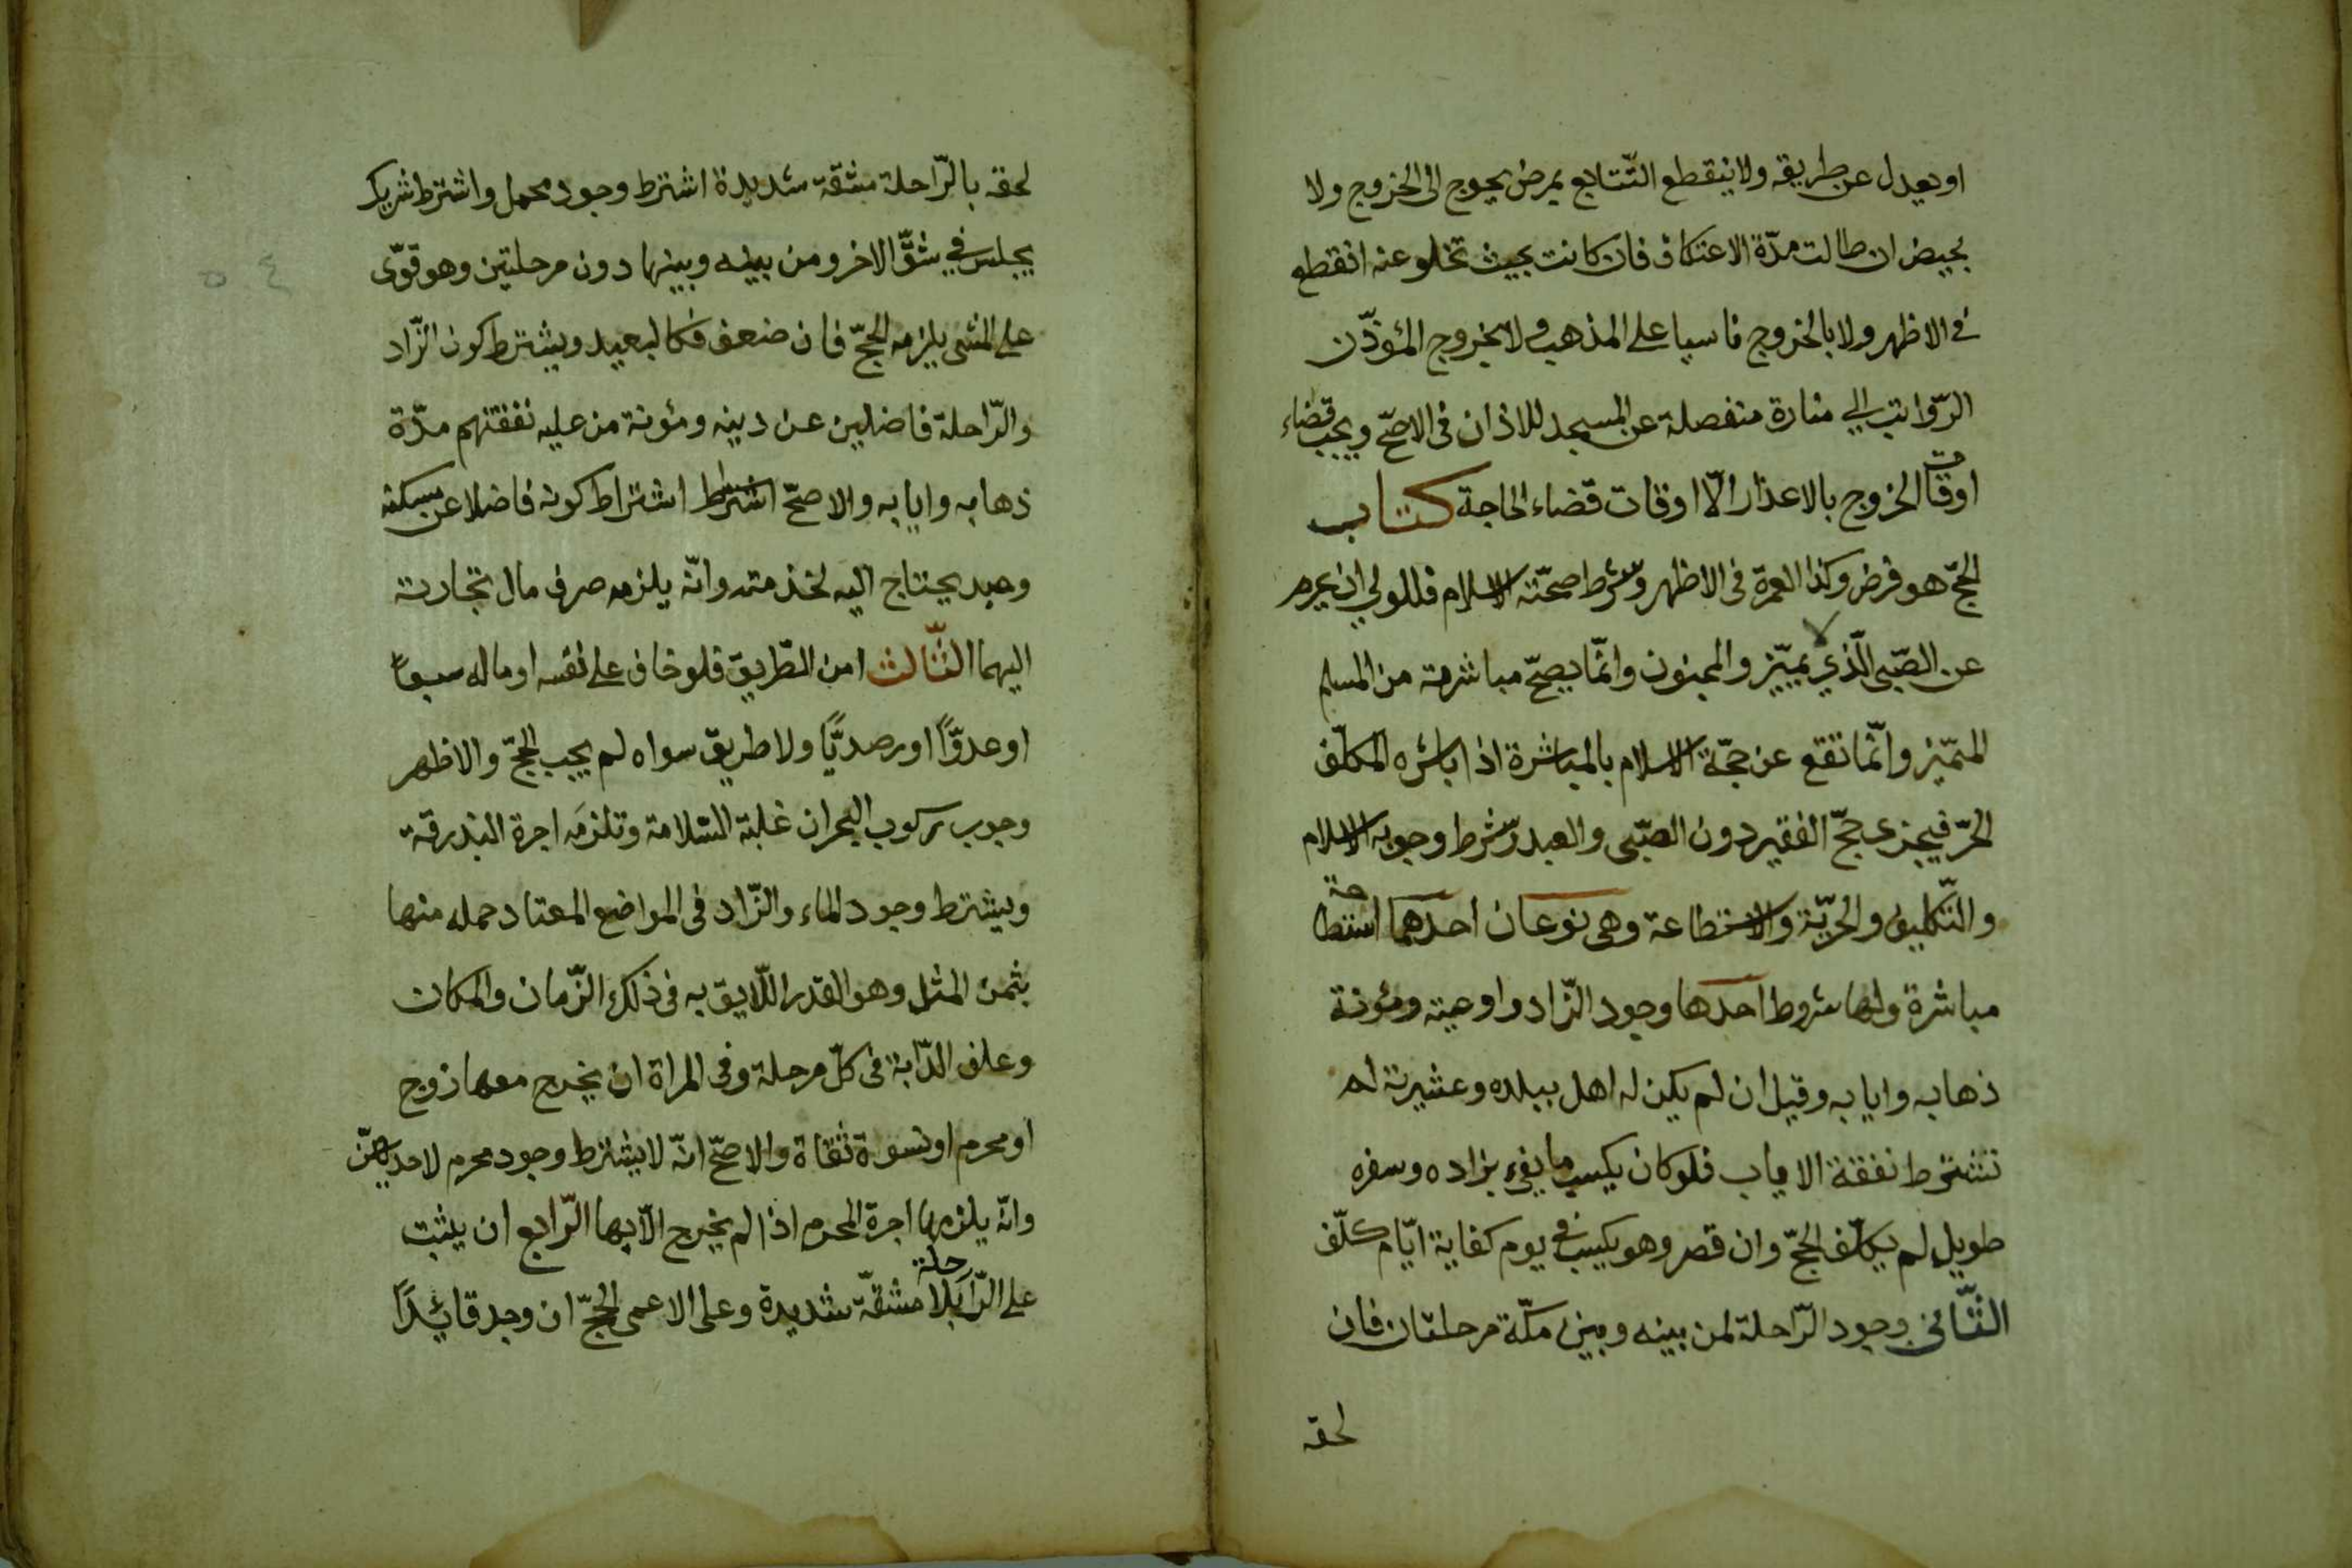 او يعدل عن طريقه ولا ينقطع التّتابع بمرض يحوج الى الخروج ولا
بحيض ان طالت مدّة الاعتكاف فان كانت بحيث تخلو عنه انقطع
في الاظهر ولا بالخروج ناسيا على المذهب ولا بخروج المؤذّن
الرّواتب الي منارة منفصلة عن المسجد للاذان فى الاصحّ ويجب قضاء
اوقات الخروج بالاعذار الّا اوقات قضاء الحاجة كتاب
الحجّ هو فرض وكذا العمرة فى الاظهر وشرط صحّته الاسلام فللولي ان يحرم
عن الصّبى الّذي يميّز والمجنون وانّما يصحّ مباشرته من المسلم
المتميّز وانّما تقع عن حجّة الاسلام بالمباشرة اذا باشره المكلّف
الحرّ فيجزى حجّ الفقير دون الصّبى والعبد وشرط وجوبه الاسلام
والتّكليف والحريّة والاستطاعة وهى نوعان احدهما استطاعة
مباشرة ولها شروط احدها وجود الزّاد واوعيته ومؤنة
ذهابه وايابه وقيل ان لم يكن له اهل ببلده وعشيرته لم
تشترط نفقة الاياب فلو كان يكسب ما يفي بزاده وسفره
طويل لم يكلّف الحجّ وان قصر وهو يكسب في يوم كفاية ايّام كلّف
الثّانى وجود الرّاحلة لمن بينه وبين مكّة مرحلتان فان
لحقه
لحقه بالرّاحلة مشقة شديدة اشترط وجود محمل واشترط شريك
يجلس في شقّ الاخر ومن بينه وبينها دون مرحلتين وهو قوّى
على المشى يلزمه الحجّ فان ضعف فكالبعيد ويشترط كون الزّاد
والرّاحلة فاضلين عن دينه ومؤنة من عليه نفقتهم مدّة
ذهابه وايابه والاصحّ اشترط اشتراط كونه فاضلا عن مسكنه
وعبد يحتاج اليه لخدمته وانّه يلزمه صرف مال تجارته
اليهما الثّالث امن الطّريق فلو خاف على نفسه او ماله سبعا
او عدوًّا او رصديًّا ولا طريق سواه لم يجب الحجّ والاظهر
وجوب ركوب البحر ان غلبة السّلامة وتلزمَه اجرة البذرقة
ويشترط وجود الماء والزّاد فى المواضع المعتاد حمله منها
بثمن المثل وهو القدر اللّايق به فى ذلك الزّمان والمكان
وعلف الدّابة فى كلّ مرحلة وفى المراة ان يخرج معها زوج
او محرم او نسوة ثقاة والاصحّ انّه لا يشترط وجود محرم لاحديهنّ
وانّه يلزمها اجرة المحرم اذا لم يخرج الّا بها الرّابع ان يثبت
على الرّاحلة بلا مشقّة شديدة وعلى الاعمى الحجّ ان وجد قائدًا